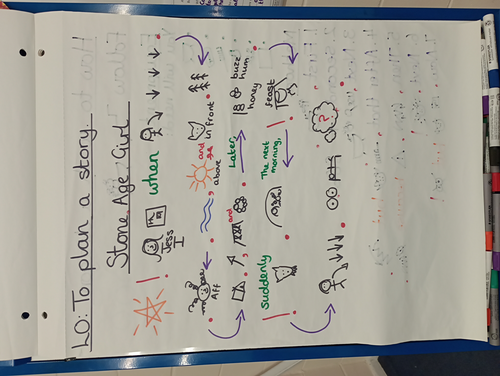 LO: To plan a story.
Stone Age Girl
Jess
I
when
Aff
above
and
in front
and
Later,
buzz
hum
honey
Suddenly
The next
morning,
feast